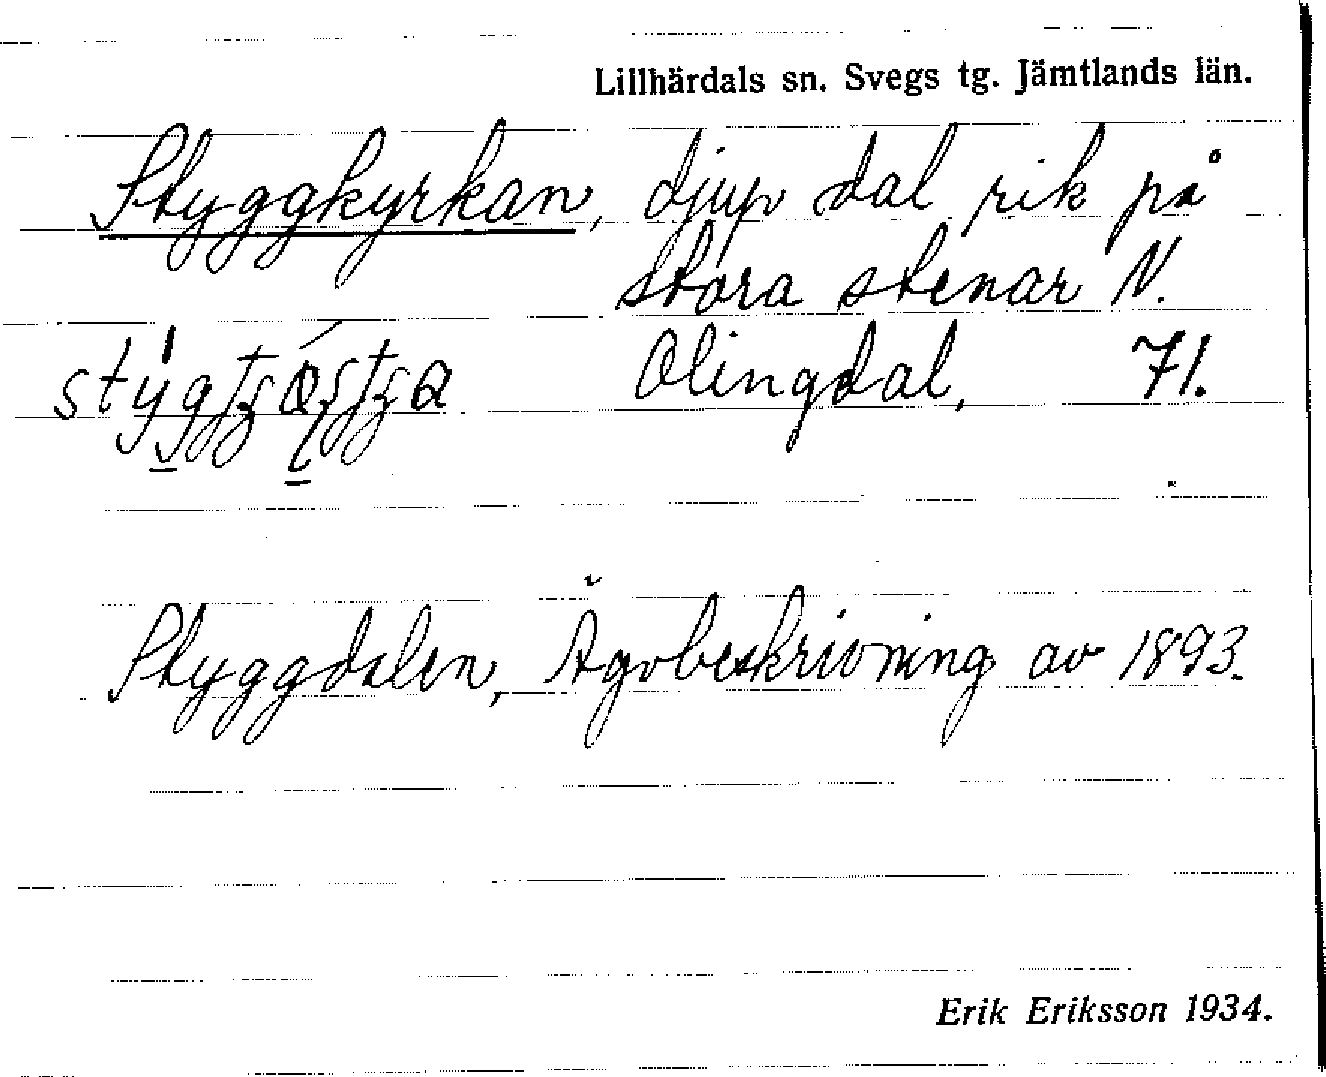 Lillhärdals sn. Svegs tg. Jämtlands län.
Styggkyrkan, djup dal rik på
stora stenar N.
Olingdal, 71.
Styggdalen, Ägobeskrivning av 1893.
Erik Eriksson 1934.